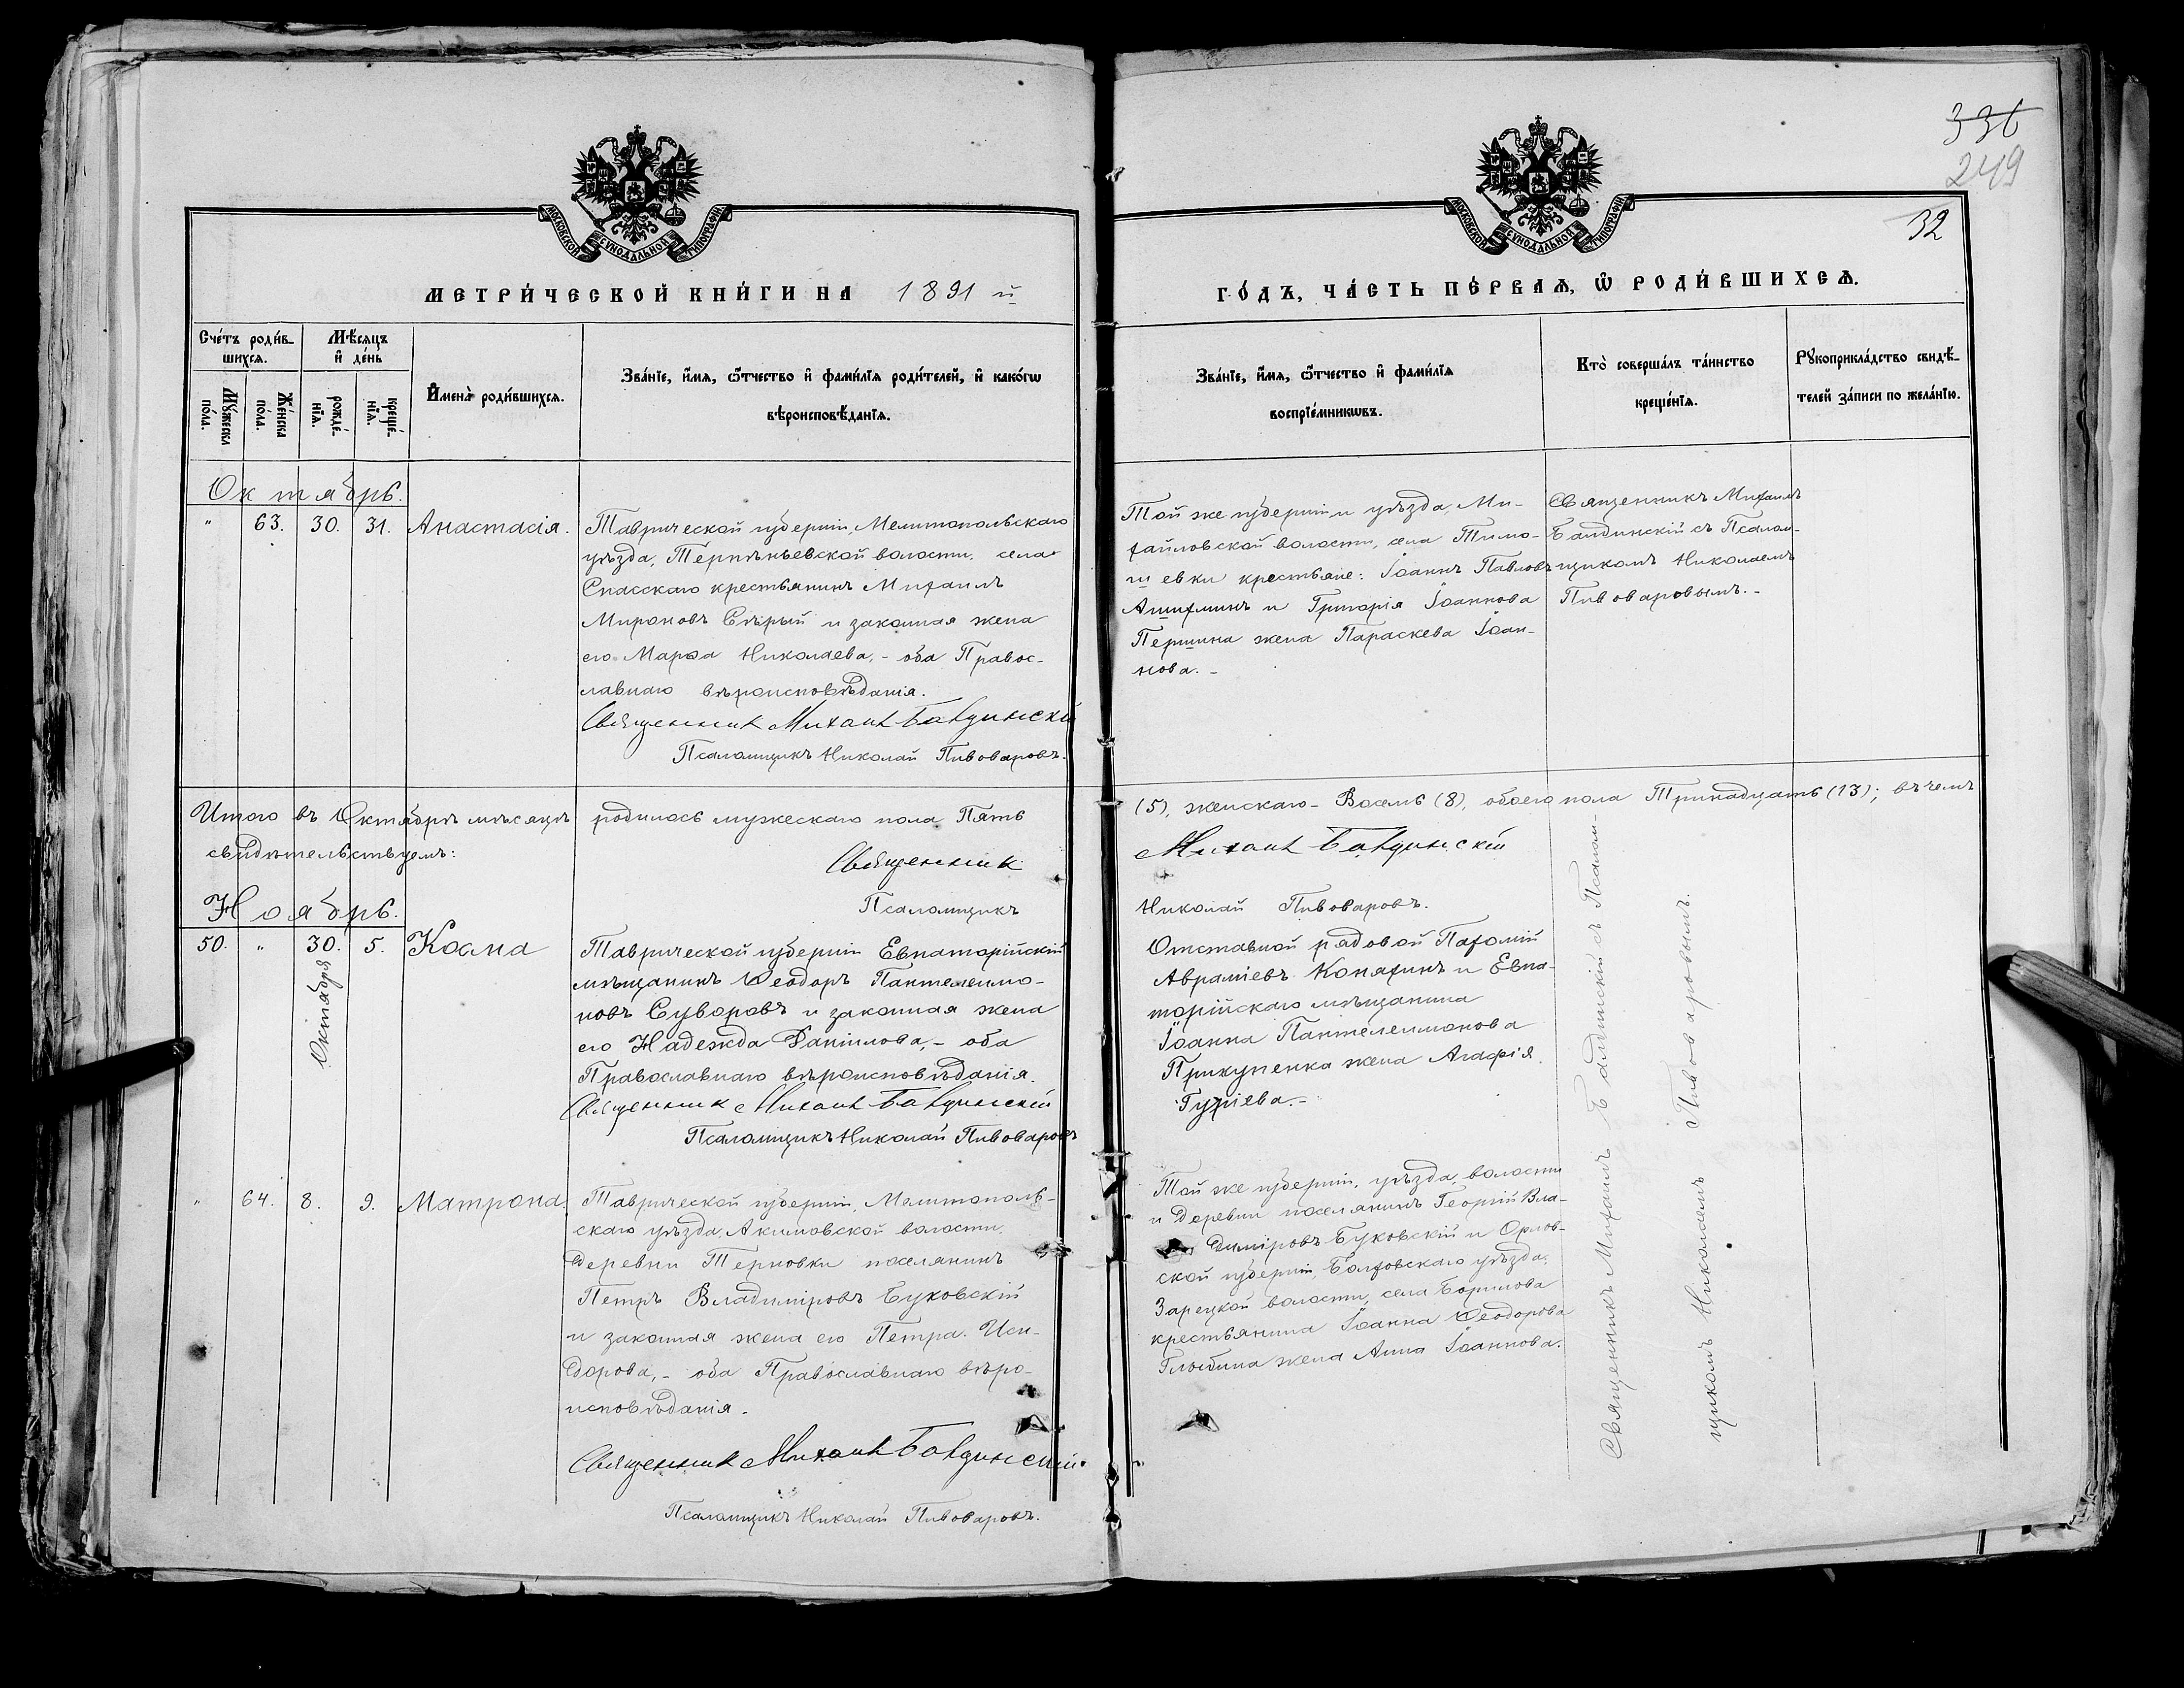 336
249
32
МОСКОВСКОЙ СѴНОДАЛЬНОЙ ТИПОГРАФІИ
МОСКОВСКОЙ СѴНОДАЛЬНОЙ ТИПОГРАФІИ
МЕТРИ́ЧЕСКОЙ КНИ́ГИ НА 1891 й
ГО́ДЪ, ЧА́СТЬ ПЕ́РВАѦ, Ѽ РОДИ́ВШИХСѦ.
Сче́тъ роди́в-
шихсѧ.
Мѣ́сѧцъ
и҆ де́нь
Мꙋ́жеска
по́ла.
Же́нска
по́ла.
рожде́-
нїѧ.
креще́-
нїѧ.
И҆мена̀ роди́вшихсѧ.
Зва́нїе, и҆́мѧ, ѻ҆́тчество и҆ фами́лїѧ роди́телей, и҆ како́гѡ
вѣроисповѣ́данїѧ.
Зва́нїе, и҆́мѧ, ѻ҆́тчество и҆ фами́лїѧ
воспрїе́мникѡвъ.
Кто̀ соверша́лъ та́инство
креще́нїѧ.
Рꙋкоприкла́дство свидѣ́-
телей за́писи по жела́нїю.
Октябрь.
" 63. 30. 31. Анастасія.
Таврической губерніи, Мелитопольскаго
уѣзда, Терпѣньевской волости, села
Спасскаго крестьянинъ Михаилъ
Мироновъ Сѣрый и законная жена
его Марѳа Николаева, - оба Правос-
лавнаго вѣроисповѣданія.
Священник Михаил Балдинскій
Псаломщикъ Николай Пивоваровъ.
Той же губерніи и уѣзда, Ми-
хайловской волости, села Тимо-
шевки крестьяне: Іоаннъ Павловъ
Ашихминъ и Григорія Іоаннова
Першина жена Параскева Іоан-
нова. -
Священникъ Михаилъ
Балдинскій съ Псалом-
щикомъ Николаемъ
Пивоваровымъ. -
Итого въ Октябрѣ мѣсяцѣ родилось мужескаго пола Пять
(5), женскаго - Восемь (8), обоего пола Тринадцать (13); въ чемъ
свидѣтельствуемъ:
Священник Михаил Балдинскій
Псаломщикъ Николай Пивоваровъ.
Ноябрь.
50. " 30. 5. Косма
Октября
Таврической губерніи Евпаторійскій
мѣщанинъ Ѳеодоръ Пантелеимо-
новъ Суворовъ и законная жена
его Надежда Даніилова, - оба
Православнаго вѣроисповѣданія.
Священник Михаил Балдинскій
Псаломщикъ Николай Пивоваровъ
Отставной рядовой Пахомій
Авраміевъ Коняхинъ и Евпа-
торійскаго мѣщанина
Іоанна Пантелеимонова
Прикупенка жена Агафія
Гуріева. -
" 64. 8. 9. Матрона.
Таврической губерніи, Мелитополь-
скаго уѣзда, Акимовской волости,
деревни Терновки поселянинъ
Петръ Владиміровъ Буковскій
и законная жена его Петра Иси-
дорова, - оба Православнаго вѣро-
исповѣданія -
Священник Михаил Балдинскій.
Псаломщикъ Николай Пивоваровъ.
Той же губерніи, уѣзда, волости
и деревни поселянинъ Георгій Вла-
диміровъ Буковскій и Орлов-
ской губерніи, Болховскаго уѣзда,
Зарецкой волости, села Борилова
крестьянина Іоанна Ѳеодорова
жена Анна Іоаннова.
Священникъ Михаилъ Балдинскій съ Псалом-
щикомъ Николаемъ Пивоваровымъ.